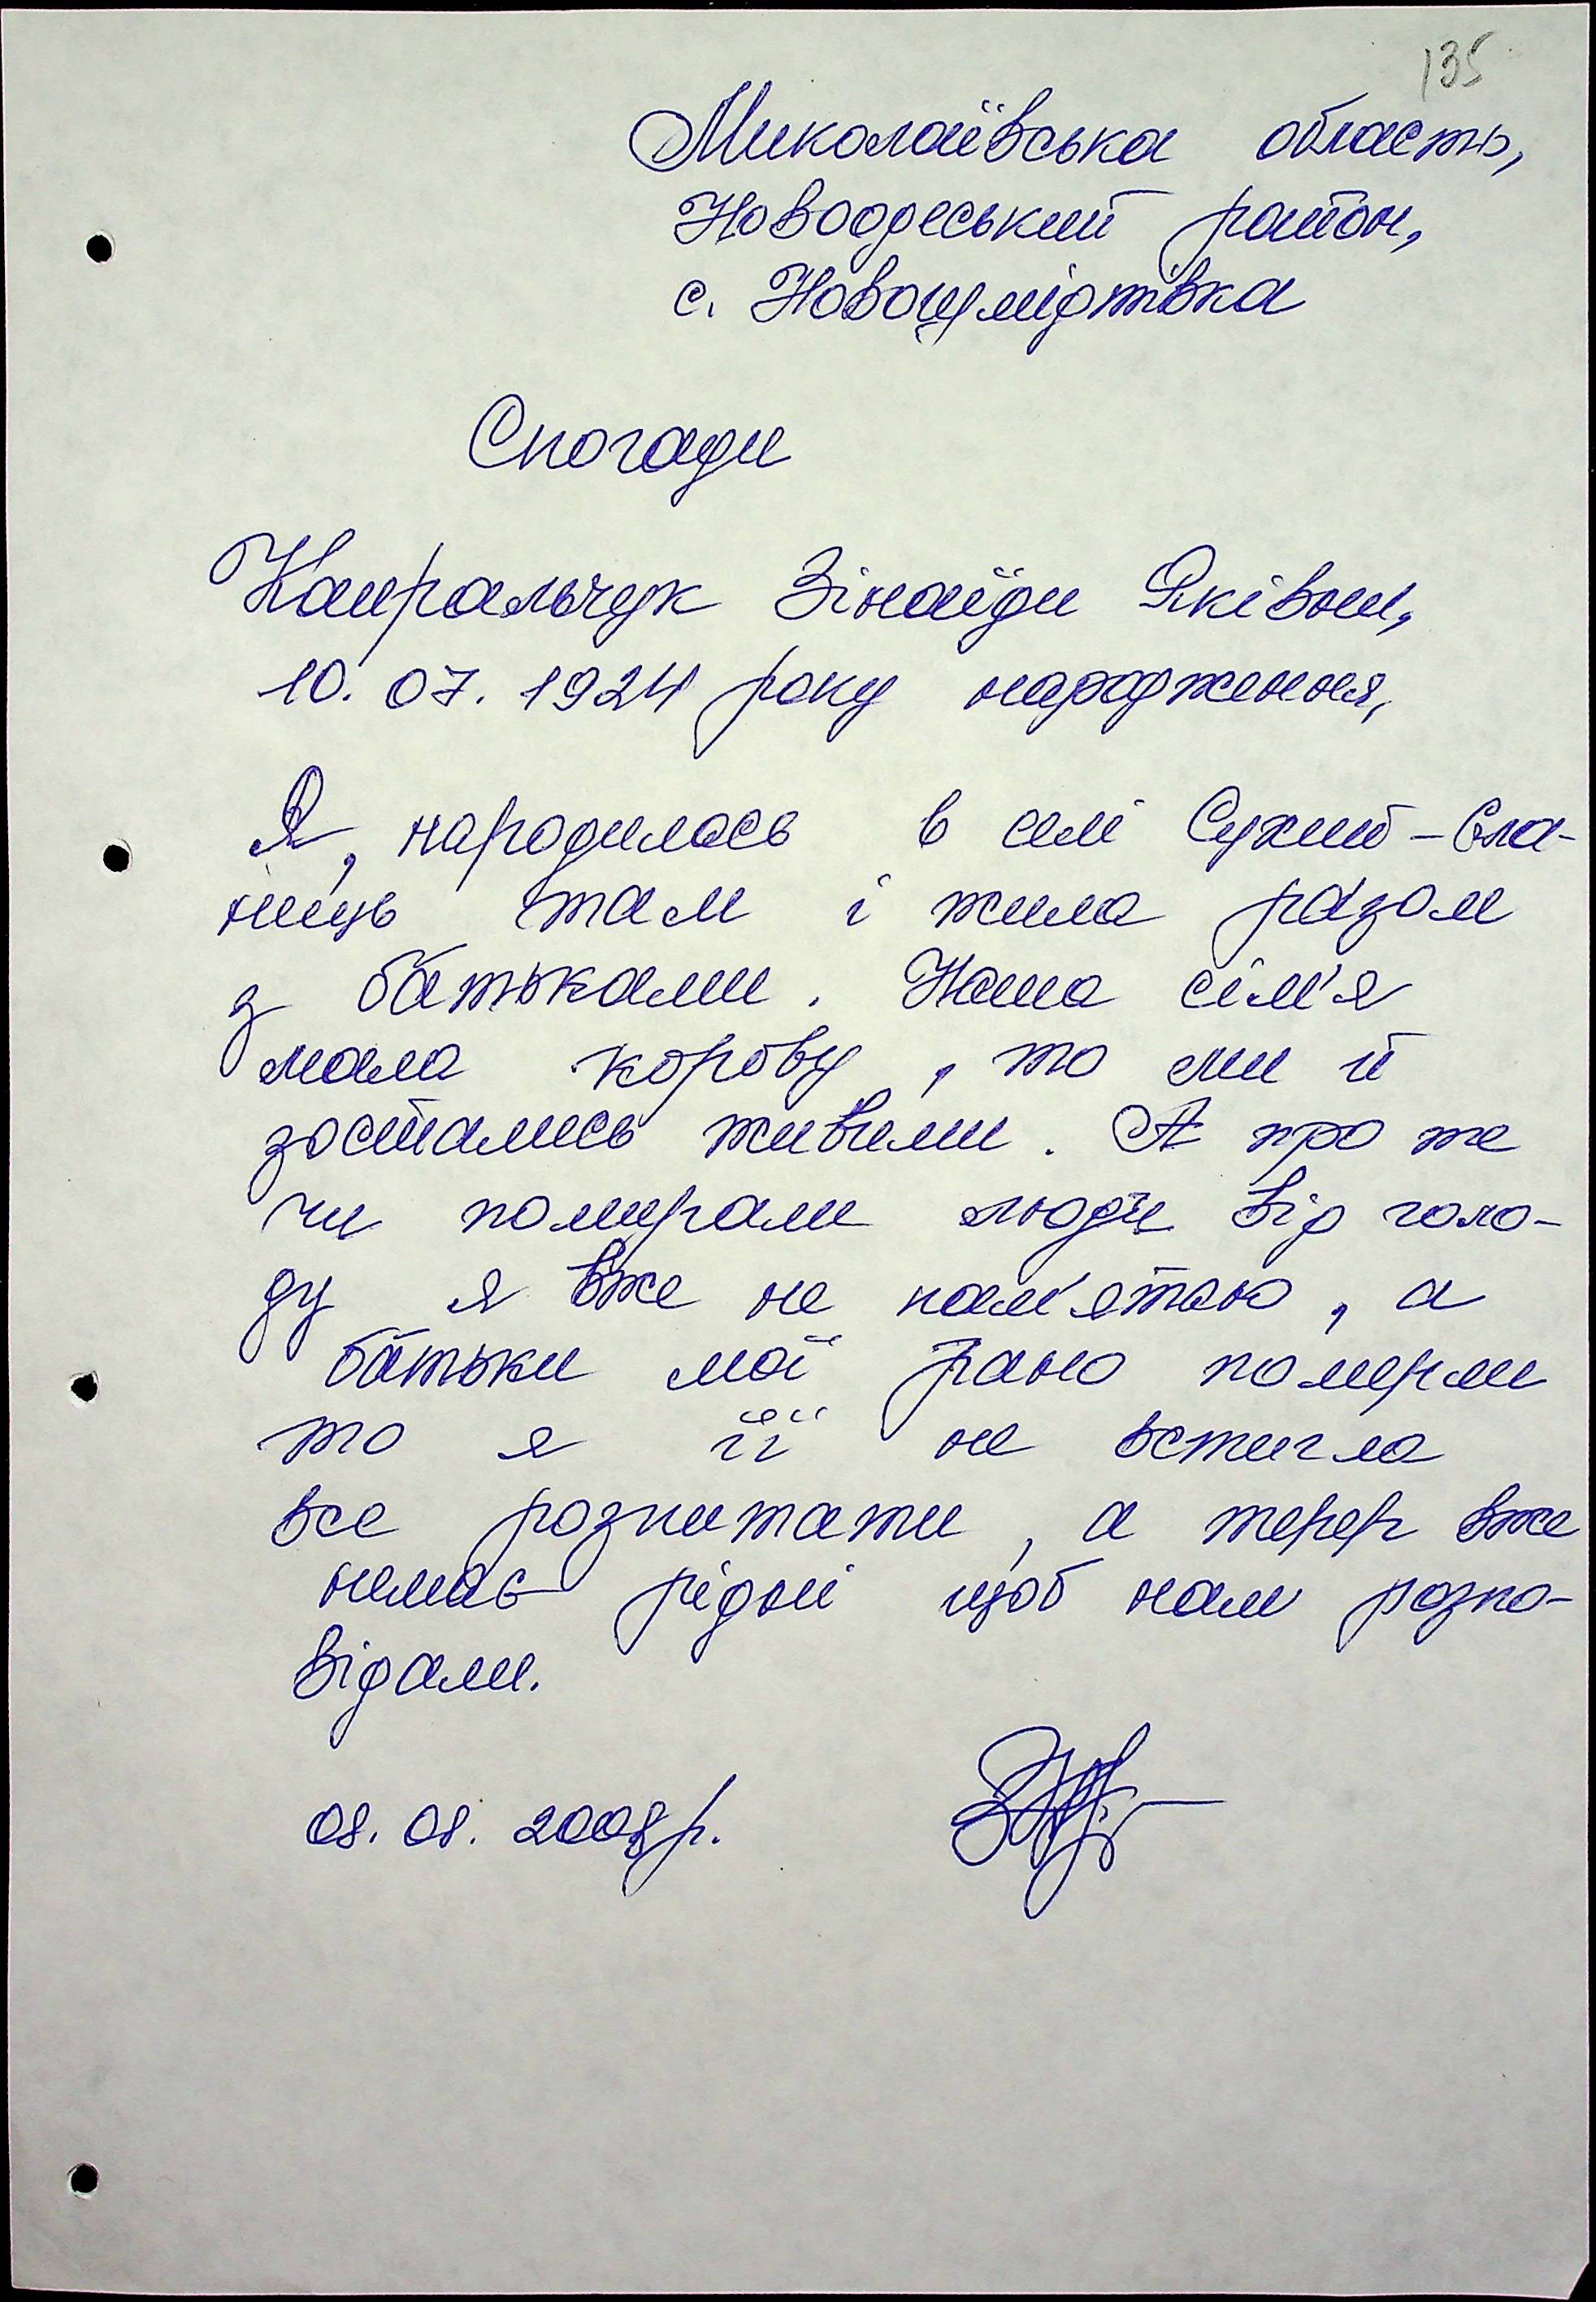 135
Миколаївська область,
Новоодеський район,
с. Новошмідтівка
Спогади
Капральчук Зінаїди Яківни,
10. 07. 1924 року народження,
Я, народилась в селі Сухий-Єла-
нець там і жила разом
з батьками. Наша сім'я
мала корову, то ми й
зостались живими. А про те
чи помирали люди від голо-
ду я вже не пам'ятаю, а
батьки мої рано померли
то я її не встигла
все розпитати, а тепер вже
немає рідні щоб нам розпо-
відали.
08. 08. 2008 р.